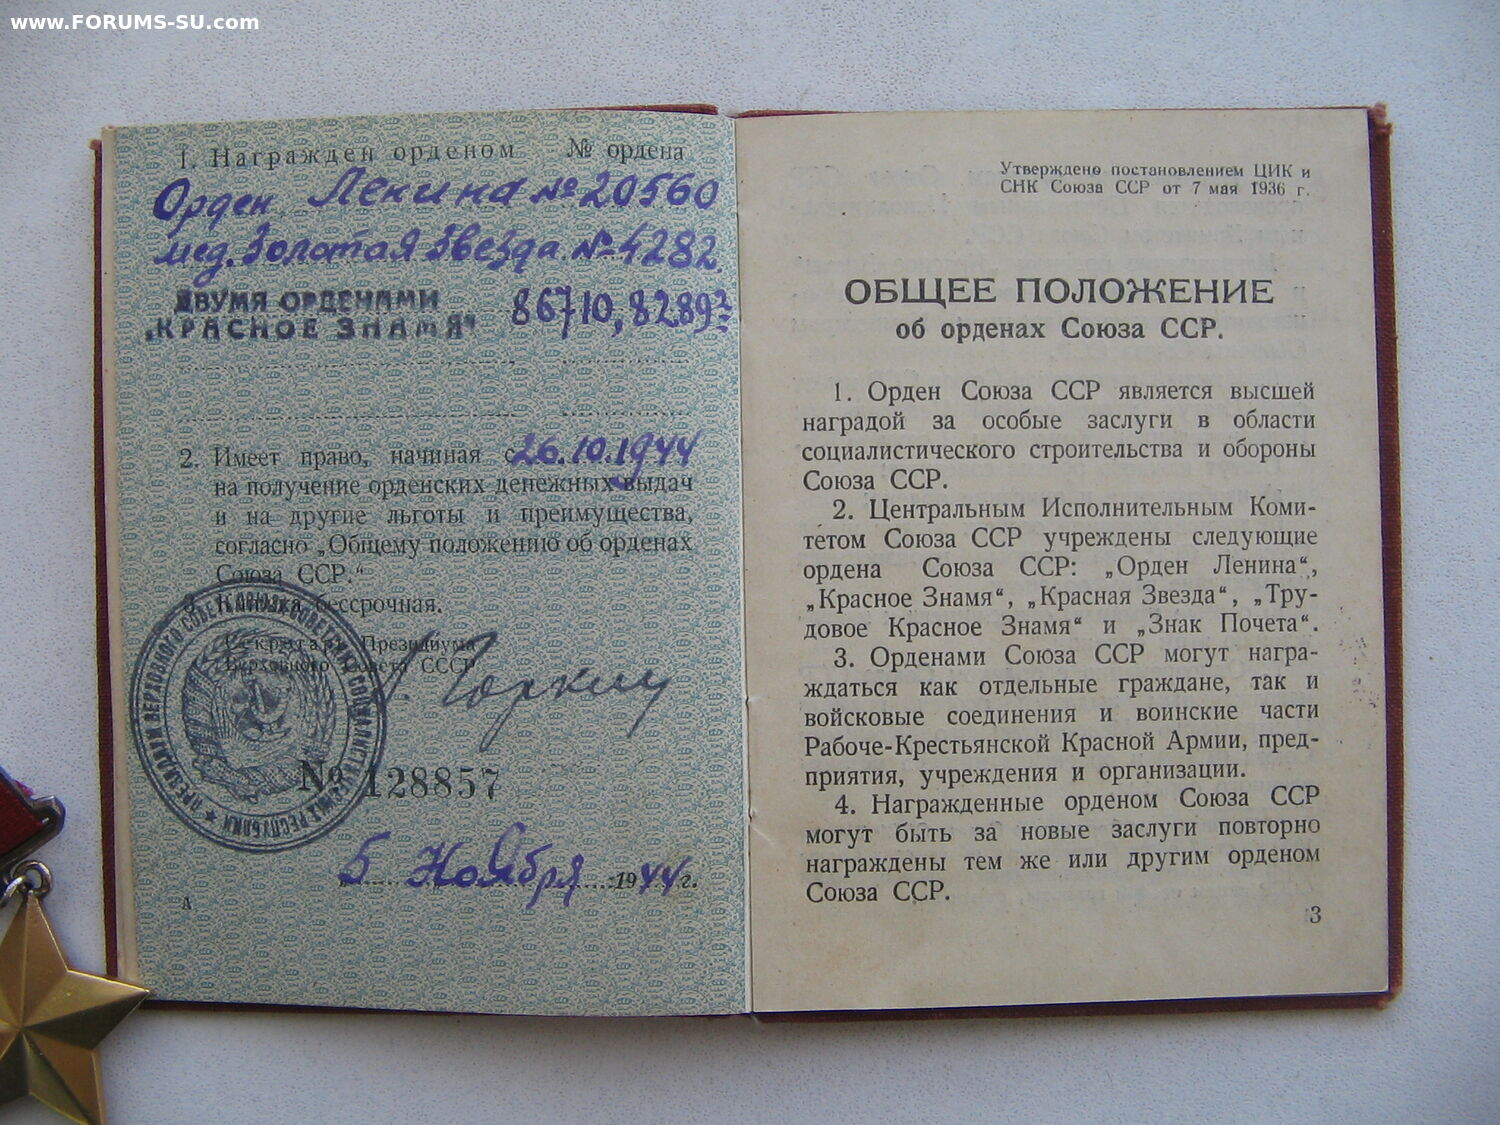 www.FORUMS-SU.com
1. Награжден орденом № ордена
Орден Ленина № 20560
мед. Золотая Звезда № 4282
ДВУМЯ ОРДЕНАМИ
„КРАСНОЕ ЗНАМЯ“ 86710, 8289
2. Имеет право, начиная с 26.10.1944
на получение орденских денежных выдач
и на другие льготы и преимущества,
согласно „Общему положению об орденах
Союза ССР.“
3. Книжка бессрочная.
Секретарь Президиума
Верховного Совета СССР
Горкин
№ 128857
„5 Ноября 1944 г.
А
Утверждено постановлением ЦИК и
СНК Союза ССР от 7 мая 1936 г.
ОБЩЕЕ ПОЛОЖЕНИЕ
об орденах Союза ССР.
1. Орден Союза ССР является высшей
наградой за особые заслуги в области
социалистического строительства и обороны
Союза ССР.
2. Центральным Исполнительным Коми-
тетом Союза ССР учреждены следующие
ордена Союза ССР: „Орден Ленина“,
„Красное Знамя“, „Красная Звезда“, „Тру-
довое Красное Знамя“ и „Знак Почета“.
3. Орденами Союза ССР могут награ-
ждаться как отдельные граждане, так и
войсковые соединения и воинские части
Рабоче-Крестьянской Красной Армии, пред-
приятия, учреждения и организации.
4. Награжденные орденом Союза ССР
могут быть за новые заслуги повторно
награждены тем же или другим орденом
Союза ССР.
3